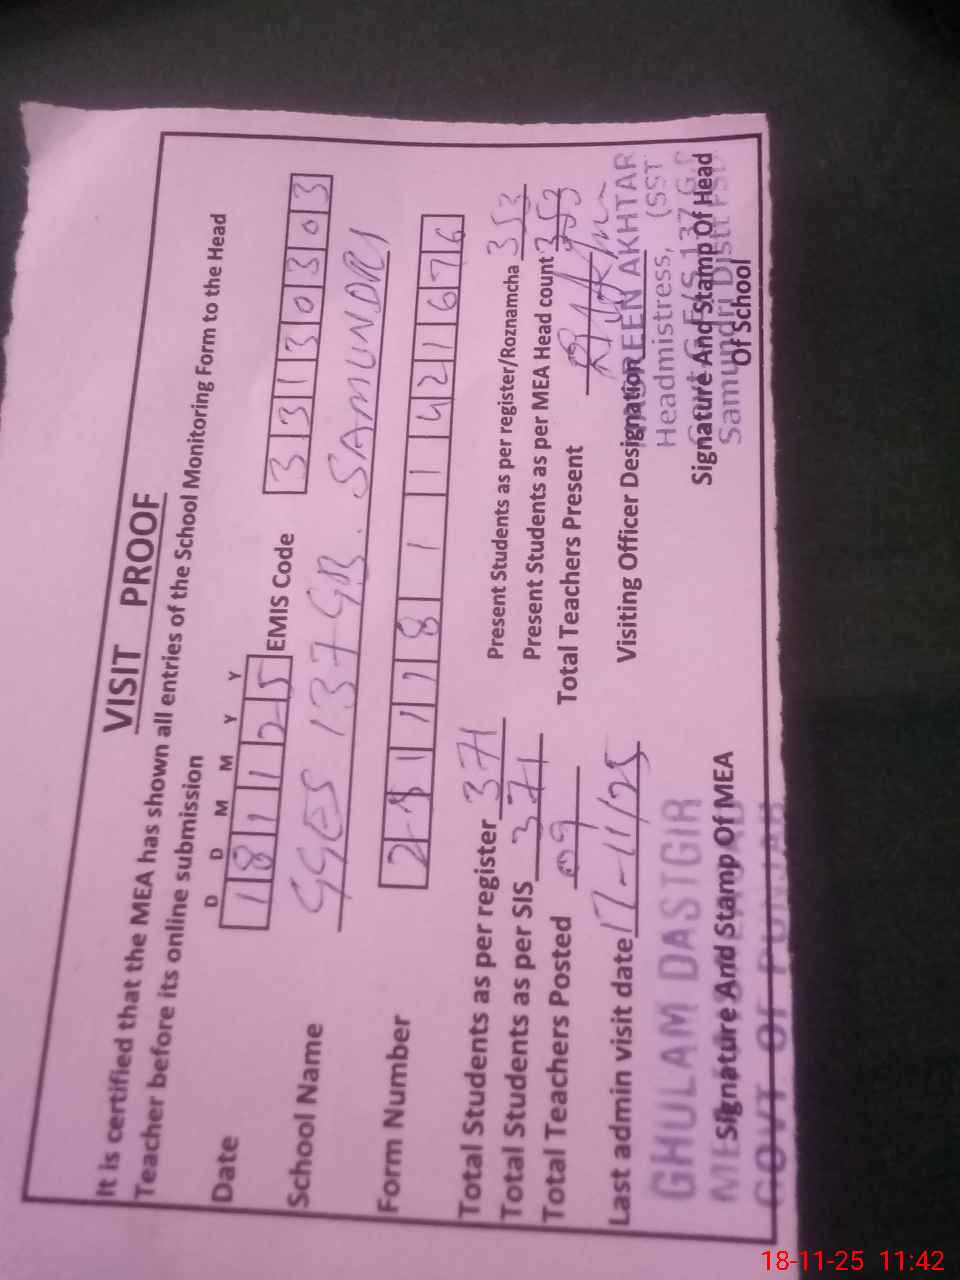 VISIT PROOF
It is certified that the MEA has shown all entries of the School Monitoring Form to the Head
Teacher before its online submission
D D M M Y Y
Date 181125 EMIS Code 33130303
School Name GGES 137 GB. SAMUNDRI
Form Number 2 1 1 8 1 1 4 2 1 6 7 6
Total Students as per register 371 Present Students as per register/Roznamcha 353
Total Students as per SIS 371 Present Students as per MEA Head count 353
Total Teachers Posted 09 Total Teachers Present
Last admin visit date 17-11/25 Visiting Officer Designation
GHULAM DASTGIR
GOVT OF PUNJAB
Signature And Stamp Of MEA
AKHTAR
Headmistress, (SST
137 G
Samundri Distt FSD
Signature And Stamp Of Head
Of School
18-11-25 11:42